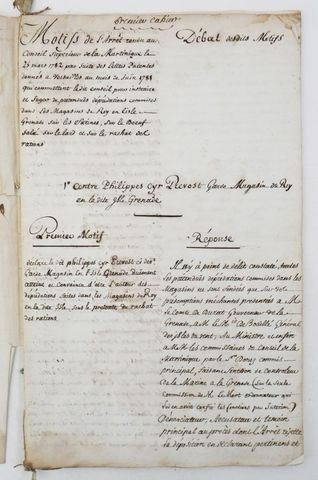 Premier Cahier
Motifs de l'Arrêt rendu au
Conseil Superieur de la Martinique le
25 mars 1782 par suite des Lettres Patentes
données a Versailles au mois de Juin 1781
qui commettent le dit conseil pour instruire
et Juger de pretendües déprédations commises
dans Les Magasins du Roy en L'isle
Grenade sur les farines, sur le Boeuf
salé sur le lard et sur le rachat des
rations
Débat desdits Motifs
1° Contre Philippes Cyr Prevost Garde Magasin du Roy
en la dite Isle Grenade
Premier Motif
declare le dit philippes cyr Prevost ci devt
Garde Magasin en L'Isle Grenade dûement
atteint et convaincu d'être L'auteur des
déprédations faites dans les Magasins du Roy
en la dite Isle, sous le pretexte du rachat
des rations
Réponse
Il n'y a point de délit constaté, toutes
les pretendües déprédations commises dans les
Magasins ne sont fondées que sur des
presomptions méchantes presentées a M.
le Comte de Durat Gouverneur de la
Grenade, à M. le Mis de Bouillé Général
des isles du vent, au Ministre et enfin
a M.M. les commissaires du Conseil de la
Martinique par le Sr. commis
principal, faisant fonction de Controleur
de la Marine a la Grenade (sur la seule
Commission de M. le Mort ordonnateur qui
lui en avoit confié les fonctions par Interim)
Dénonciateur, Accusateur et temoin
principal au procès dont l'Arrêt rejette
la déposition en déclarant pertinens et